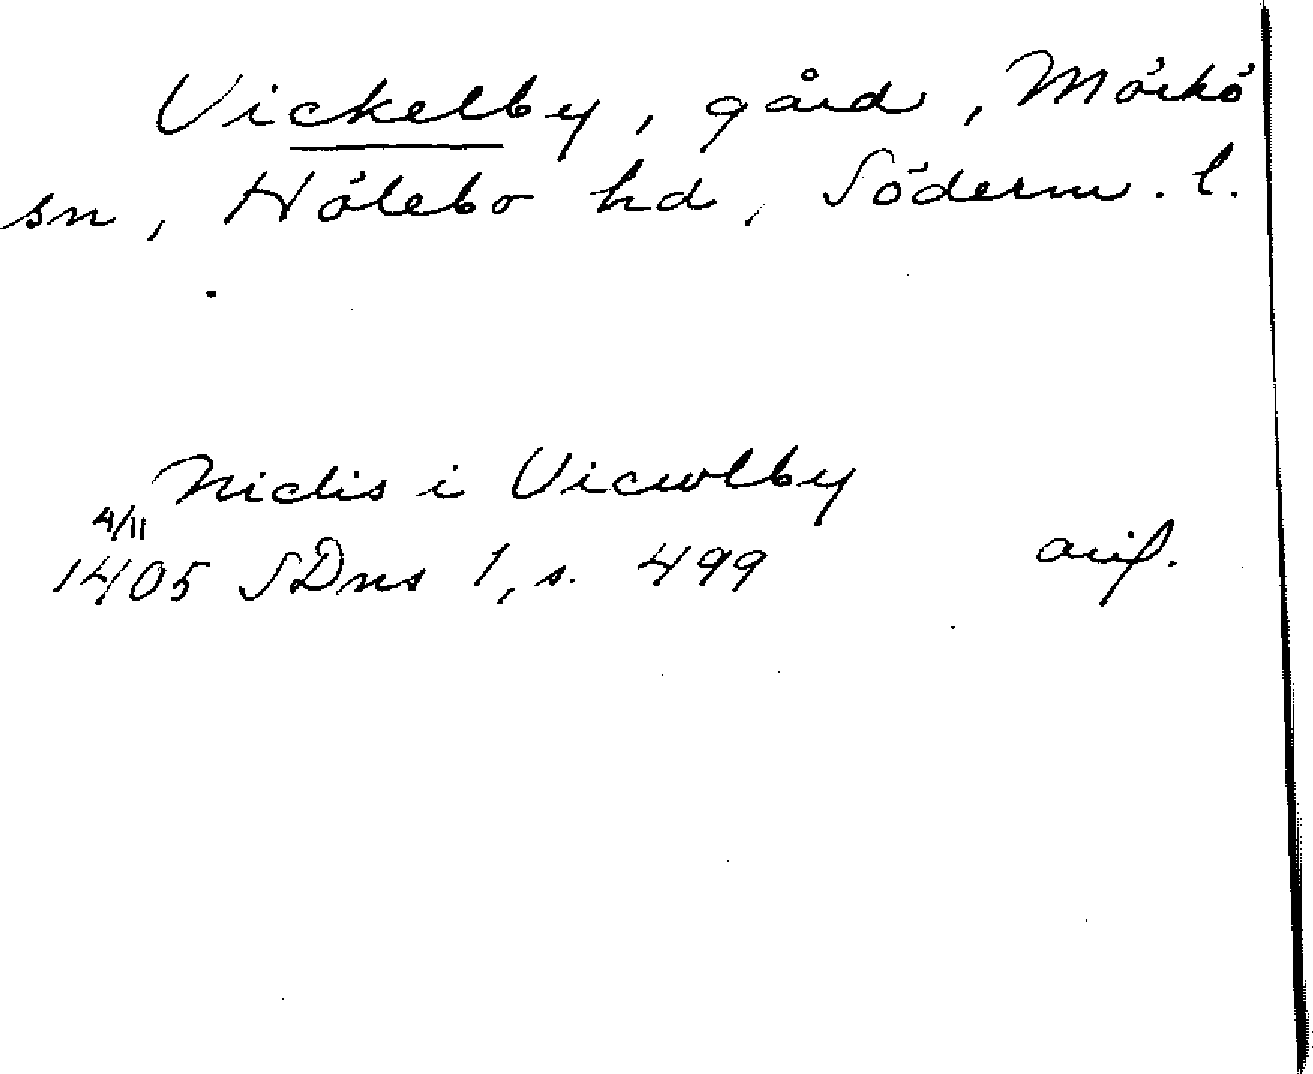 Vickelby, gård, Mörkö
sn, Hölebo hd, Söderm. l.
Niclis i Vicwlby
4/11
1405 SDns 1, s. 499 avf.